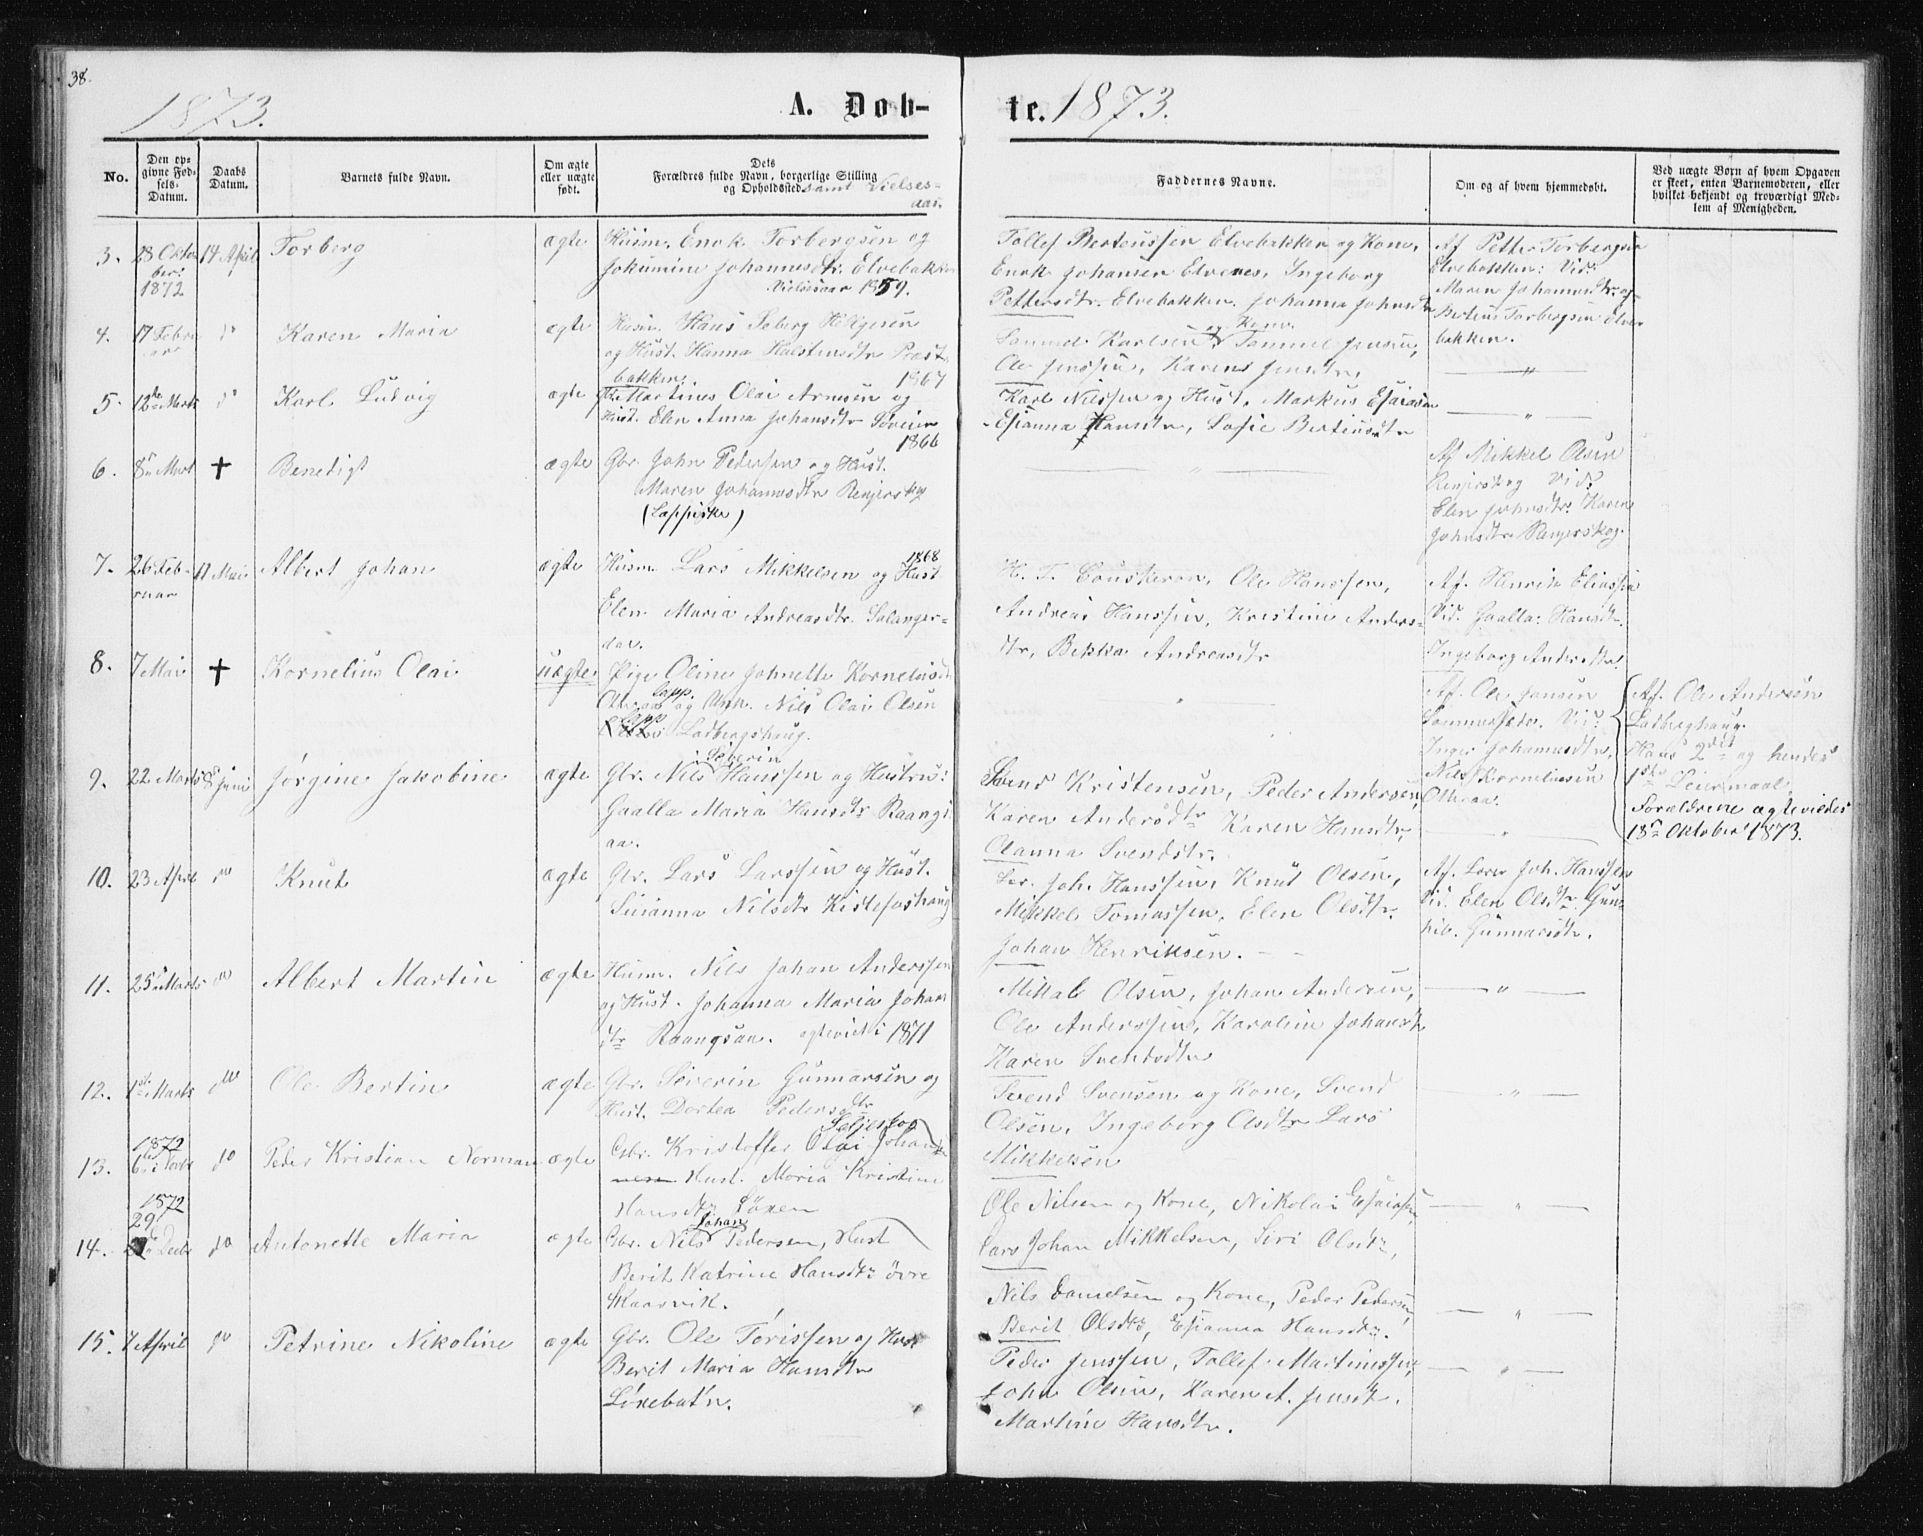 38.
1873.
A. Døb-
te. 1873.
No.
Den op-
givne Fød-
sels-
Datum.
Daabs
Datum.
Barnets fulde Navn.
Om ægte
eller uægte
født.
Dets
Forældres fulde Navn, borgerlige Stilling
og Opholdssted. samt Vielses-
aar.
Faddernes Navne.
Om og af hvem hjemmedøbt.
Ved uægte Børn af hvem Opgaven
er skeet, enten Barnemoderen, eller
hvilket bekjendt og troværdigt Med-
lem af Menigheden.
3.
28 Okto
ber
1872
14 April
Torberg
ægte
Husm. Enok Torbergsen og
Jokumine Johannesdtr. Elvebakken
Vielsesaar 1859.
Tollef Berteussen Elvebakken og Kone,
Enok Johansen Elvenes, Ingeborg
Pettersdtr. Elvebakken. Johanna Johnsdtr
Af Petter Torbergsen
Elvebakken: Vid:
Maren Johannesdtr. og
Bertius Torbergsen Elve-
bakken.
4.
17 Febru
ar
do
Karen Maria
ægte
Husm. Hans Seberg Helgesen
og Hust. Hanna Halstensdtr Præst-
bakken. 1867
Samuel Karlsen og Kone. Samuel Jensen,
Ole Jenssen, Karen Jensdtr,
"
5.
12de Marts
do
Karl Ludvig
ægte
Martines Olai Arnesen og
Hust. Elen Anna Johansdtr Søveien
1866
Karl Nilssen og Hust, Markus Esaiasen
Esianna Hansdtr, Sofie Bertiusdtr
"
6.
8de Mart
+
Benedigt
ægte
Gbr. John Pedersen og Hust.
Maren Johannesdtr Renjerskog
(Lappiske)
"
Af Mikkel Olsen
Renjerskog Vid:
Elen Johnsdtr. Karen
Johnsdtr Renjerskog.
7.
26 Feb-
ruar
11 Mai
Albert Johan
ægte
Husm. Lars Mikkelsen og Hust 1868
Elen Maria Andreasdtr. Salanger-
dal.
Ole Hanssen,
Andreas Hanssen, Kristine Anders-
dtr, Bekka Andreasdtr
Af. Henrik Eliassen
Vid. Gaalla: Hansdtr.
Ingeborg Andersdtr.
8.
7 Mai
+
Kornelius Olai
uægte
Pige Oline Johnette Kornelusdtr
og Unk. Nils Olai Olsen
Lapp Ladbergshaug.
"
Af. Ole Jansen
Vid:
Inger Johannesdtr,
Nils Korneliusen
Af. Ole Andersen
Ladbergshaug.
Hans 2det og hendes
1ste Leiermaal.
Forældrene ægteviedes
18de Oktober 1873.
9.
22 Marts
8 Juni
Jørgine Jakobine
ægte
Gbr. Nils Severin Hanssen og Hustru:
Gaalla Maria Hansdtr Raangs-
aa.
Svend Kristensen, Peder Andersen,
Karen Andersdtr Karen Hansdtr,
Olanna Svendsdtr.
"
10.
23 April
do
Knut
ægte
Gbr. Lars Larssen og Hust.
Susanna Nilsdtr Kistefoshaug
Lær. Joh. Hanssen, Knut Olsen,
Mikkel Tomassen, Elen Olsdtr.
Johan Henriksen.
Af. Lærer Joh. Hanssen
Vid. Elen Olsdtr. Gun-
hild Gunnarsdtr.
11.
25 Marts
do
Albert Martin
ægte
Husm. Nils Johan Anderssen
og Hust. Johanna Maria Johans
dtr Raangsaa. ægteviet i 1871
Mikal Olsen, Johan Andersen,
Ole Anderssen, Karoline Johansdtr
Karen Svendsdtr
"
12.
1ste Marts
do
Ole Bertin
ægte
Gbr. Severin Gunnarsen og
Hust. Dortea Pedersdtr
Seljeskog
Svend Svensen og Kone, Svend
Olsen, Ingeborg Olsdtr Lars
Mikkelsen
"
13.
1872
do
Peder Kristian Norman
ægte
Gbr. Kristoffer Olai Johan
Hust. Maria Kristine
Hansdtr Løxen
Ole Nilsen og Kone, Nikolai Esaiasen,
Lars Johan Mikkelsen, Siri Olsdtr,
"
14.
1872
29
Decbr
do
Antonette Maria
ægte
Gbr. Nils Johan Pedersen, Hust
Berit Katrine Hansdtr øvre
Skaarvik.
Nils Danielsen og Kone, Peder Pedersen,
Berit Olsdtr, Esianna Hansdtr.
"
15.
7 April
do
Petrine Nikoline
ægte
Gbr. Ole Torissen og Hust
Berit Maria Hansdtr
Løxebotn.
Peder Jenssen, Tollef Martinussen,
John Olsen, Karen A. Jensdtr.
Martine Hansdtr.
"